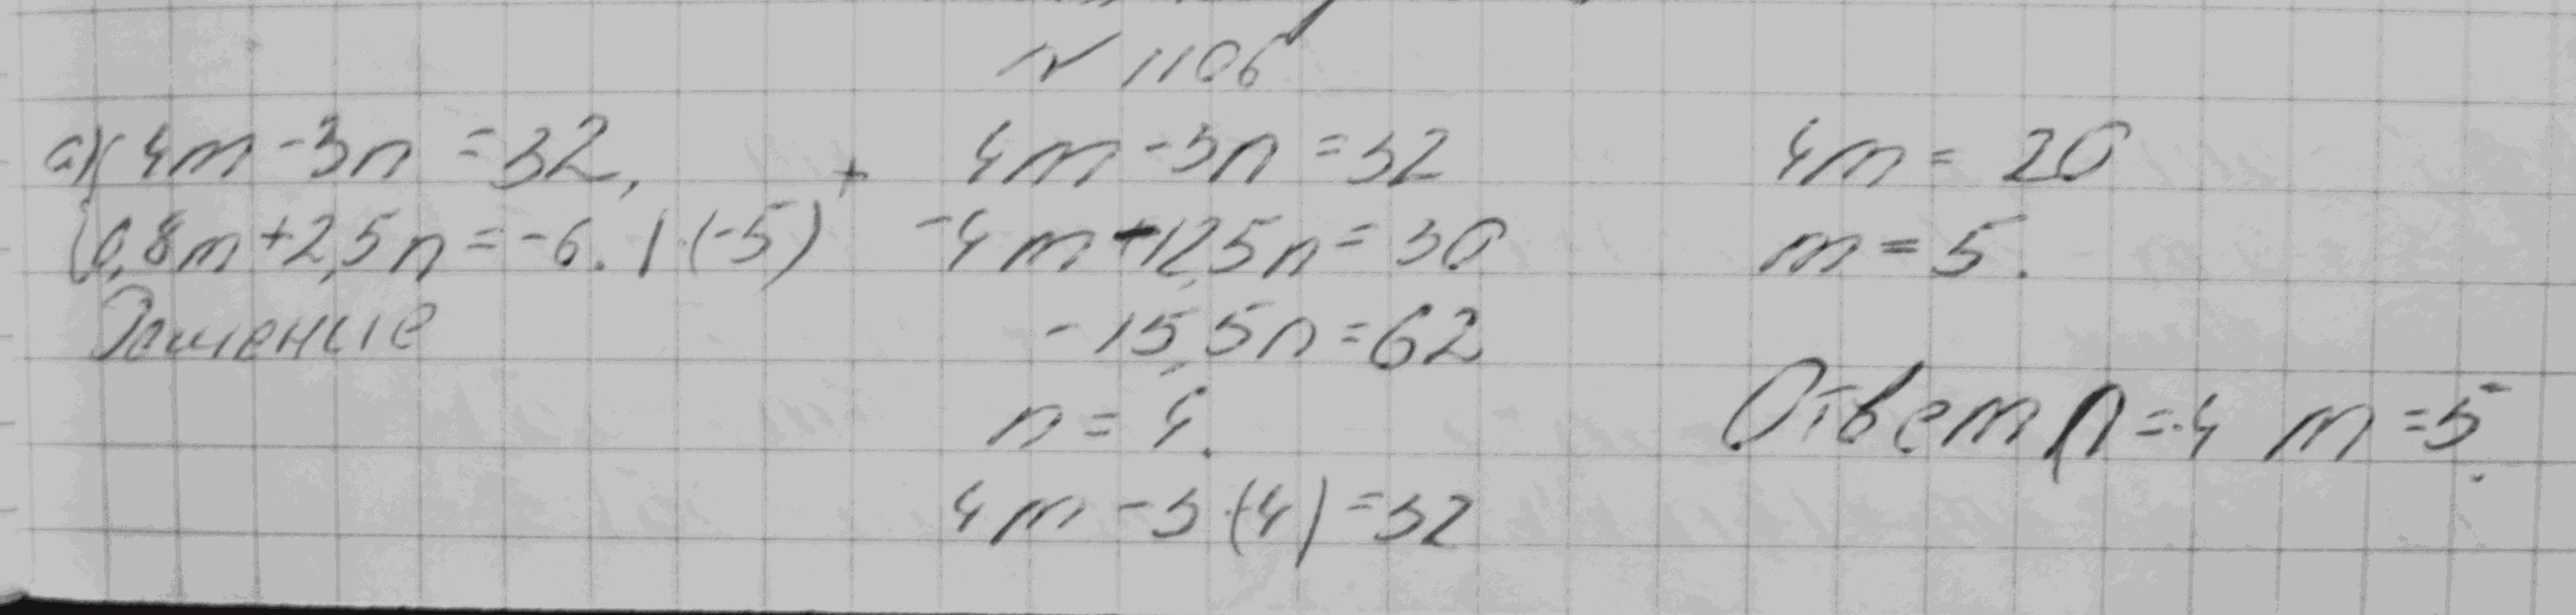 № 1106
а) { 4m - 3n = 32,
0,8m + 2,5n = -6. | · (-5)
Решение
+ 4m - 3n = 32
-4m - 12,5n = 30
-15,5n = 62
n = 4.
4m - 3 · (-4) = 32
4m = 20
m = 5.
Ответ n = -4 m = 5.